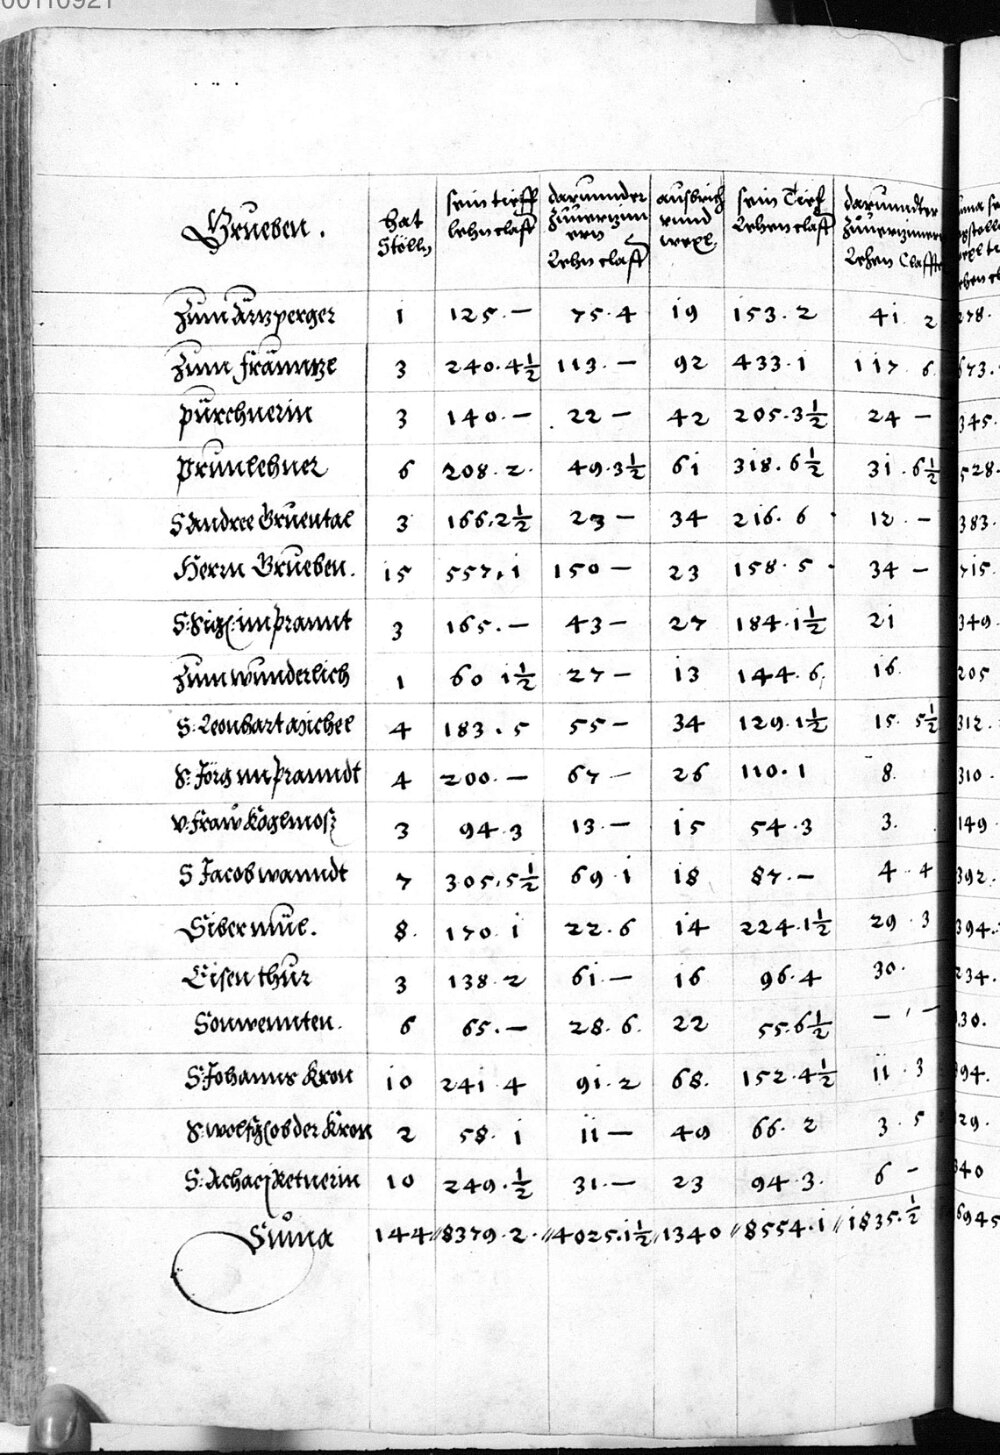 00110921
Grueben . hat Stölln sein tieff lehn claff darunnder zuuerzim̅ern Lehn claff ausbrich vnnd wexl sein Tief Lehen claff darunndter zuuerzimern Lehen Claffter
Zum Arzperger 1 125 · — 75 · 4 19 153 · 2 41 2 278 ·
Zum fränntze 3 240 · 4½ 113 · — 92 433 · 1 117 6 673 ·
pürchnerin 3 140 · — 22 — 42 205 · 3½ 24 — 345 ·
prunlehner 6 208 · 2 · 49 · 3½ 61 318 · 6½ 31 · 6½ 528 ·
S Andree Gruental 3 166 · 2½ 23 — 34 216 · 6 12 · — 383 ·
Herrn Grueben . 15 557 · 1 150 — 23 158 · 5 · 34 — 715 ·
S: Sigl: im prannt 3 165 · — 43 — 27 184 · 1½ 21 349 ·
Zum wunderlich 1 60 1½ 27 — 13 144 · 6 16 · 205
S: Leonhart aichel 4 183 · 5 55 — 34 129 · 1½ 15 · 5½ 312 ·
S: Jörg im pranndt 4 200 · — 67 — 26 110 · 1 8 · 310 ·
v: fraw Köglmosz 3 94 · 3 13 · — 15 54 · 3 3 · 149
S Jacob wanndt 7 305 · 5½ 69 · 1 18 87 · — 4 · 4 392 ·
Sibermül . 8 · 170 · 1 22 · 6 14 224 · 1½ 29 · 3 394 ·
Eisen thür 3 138 · 2 61 · — 16 96 · 4 30 · 234 ·
Sonwennten · 6 65 · — 28 · 6 · 22 55 · 6½ — · — 130 ·
S Johanns Kron 10 241 · 4 91 · 2 68 · 152 · 4½ 11 · 3 394 ·
S: wolfg: ob der Kron 2 58 · 1 11 — 49 66 · 2 3 · 5 129 ·
S: Achacj Ketnerin 10 249 · ½ 31 · — 23 94 · 3 · 6 — 340
Sum̅a 144 // 8379 · 2 · // 4025 · 1½ // 1340 // 8554 · 1 // 1835 · ½ 6945